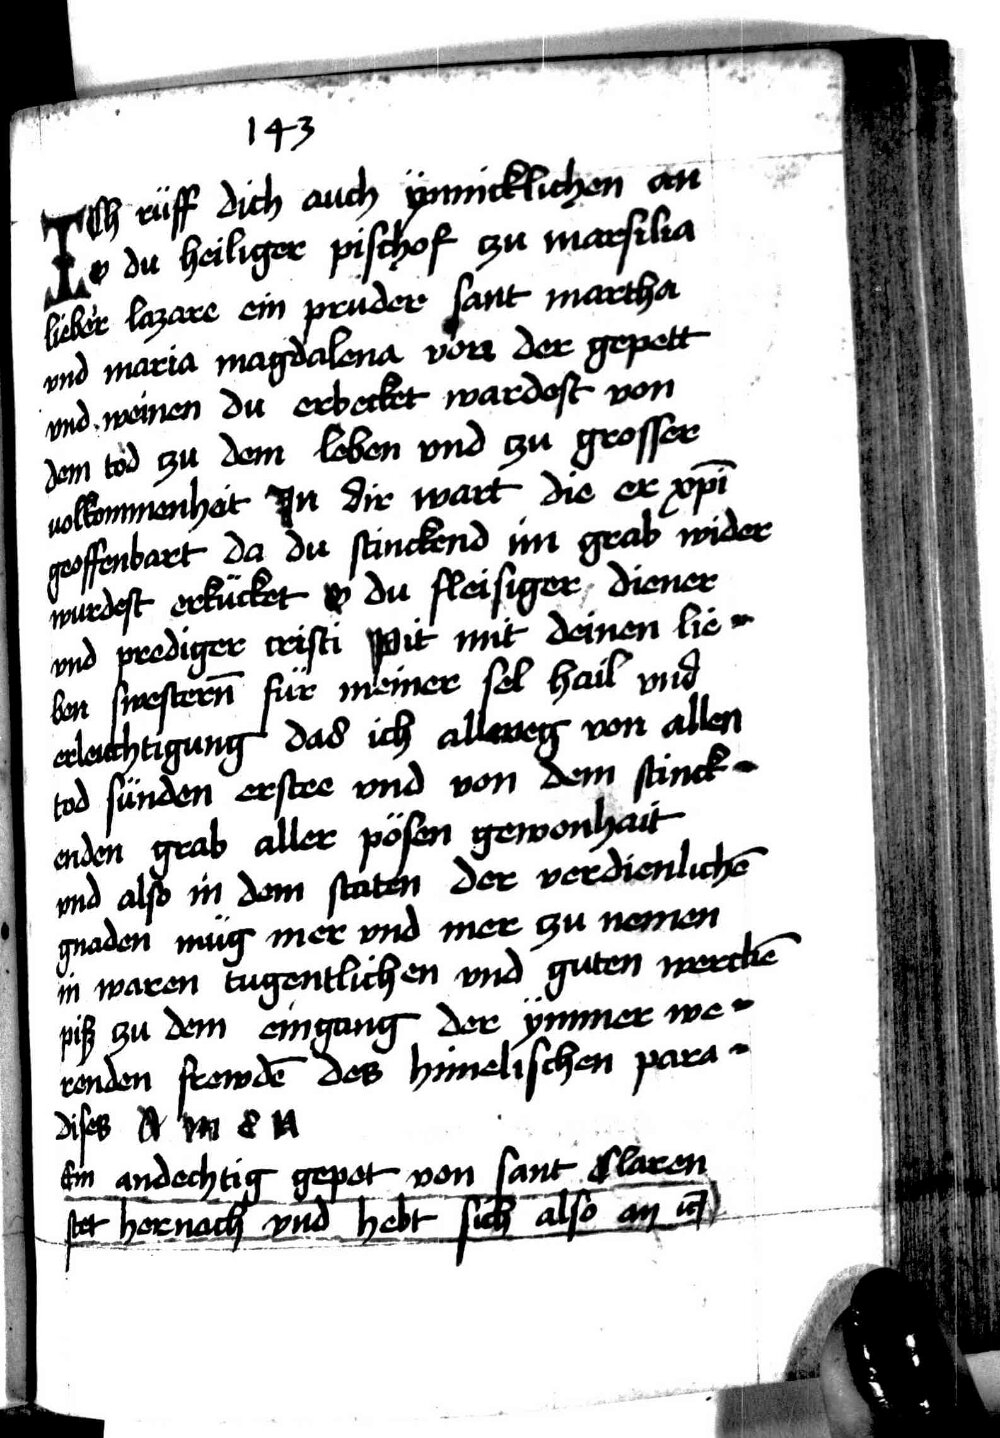 143
ICh rüff dich auch ÿnnicklichen an
o du heiliger pischof zu marsilia
lieber lazare ein pruder sant martha
vnd maria magdalena von der gepett
vnd weinen du erbecket wardest von
dem tod zu dem leben vnd zu grosser
uolkommenheit In dir wart die er xp̄i
geoffenbart da du stinckend im grab wider
wurdest erkücket o du fleisiger diener
vnd prediger cristi Pit mit deinen lie-
ben swestern̄ für meiner sel hail vnd
erleuchtigung das ich alleweg von allen
tod sünden erstee vnd von dem stinck-
enden grab aller pösen gewonhait
vnd also in dem staten der verdienlichē
gnaden müg mer vnd mer zu nemen
in waren tugentlichen vnd guten werckē
piß zu dem eingang der ÿmmer we-
renden frewdē des himelischen para-
dises A m e n
Ein andechtig gepet von sant Claren
stet hernach vnd hebt sich also an